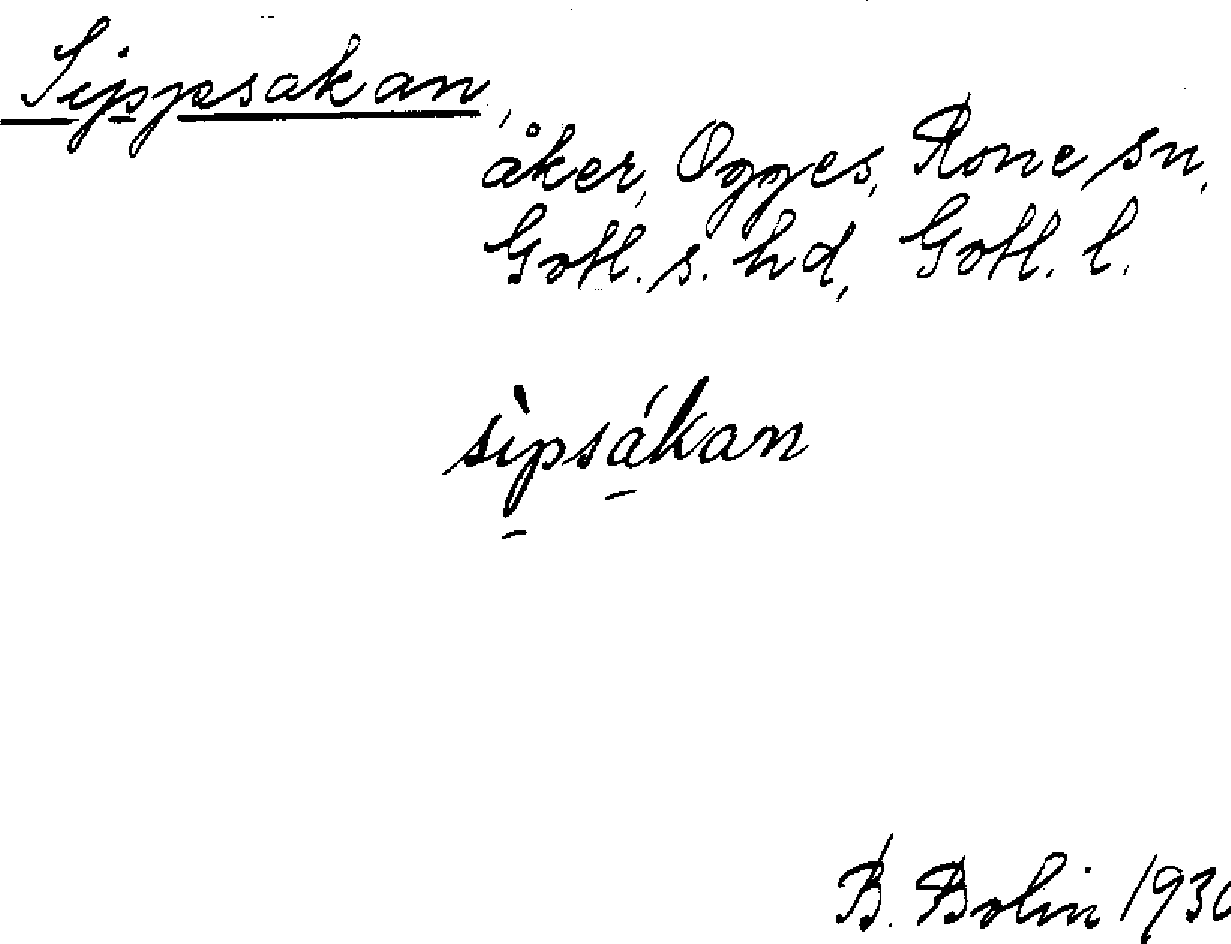 Sippsakan,
åker, Ogges, Rone sn,
Gotl. s. hd, Gotl. l.
sìpsákan
B. Bolin 1930